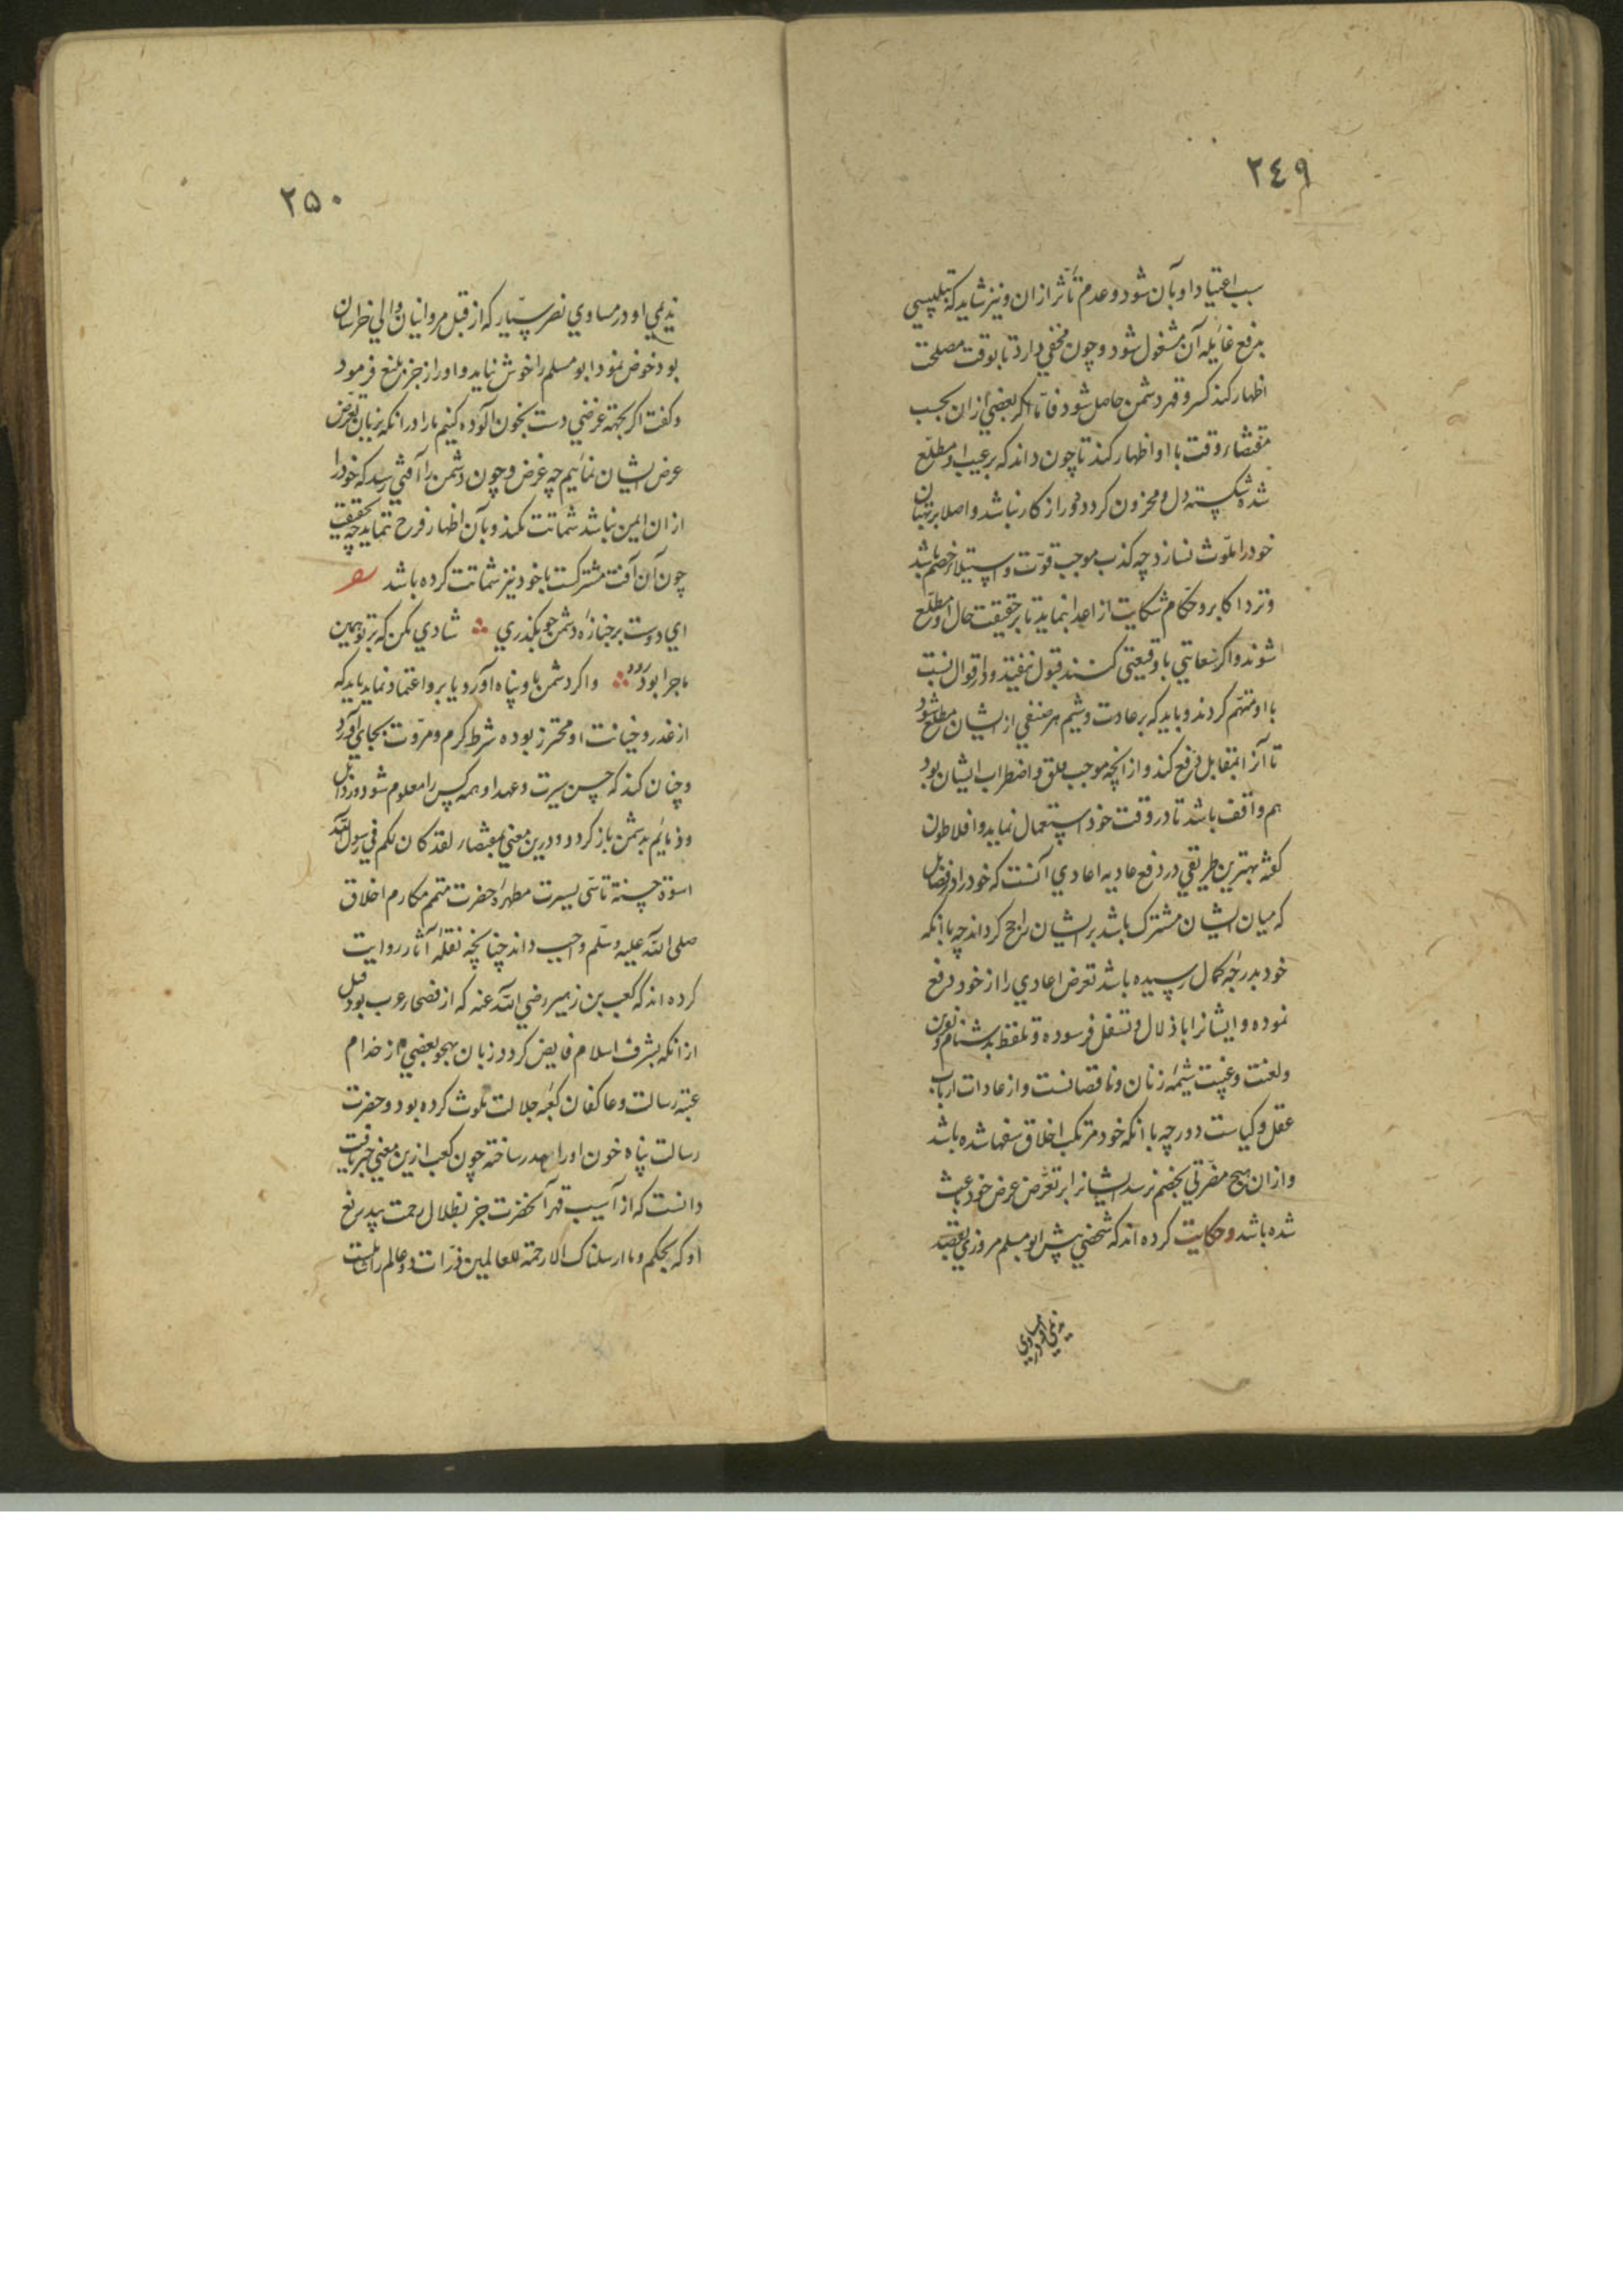 ٢٤٩
سبب اعتیاد او بآن شود و عدم تأثر ازان و نیز شاید که بتلبیسی
بدفع غایله آن مشغول شود و چون مخفی دارد تا بوقت مصلحت
اظهار کند کسر و قهر دشمن حاصل شود فاما اکر بعضی ازان بحسب
مقتضاء وقت با او اظهار کند تا چون داند که بر عیب او مطلع
شد شکسته دل و محزون کردد دور از کار نباشد و اصلا ببهتان
خود را ملوث نسازد چه کذب موجب قوت و استیلاء خصم باشد
و نزد اکابر و حکام شکایت از اعدا بنماید تا بر حقیقت حال او مطلع
شوند و اکر سعایتی یا وقیعتی کنند قبول نیفتد و در اقوال نسبت
با او متهم کردند و باید که بر عادت و شیم هر صنفی از ایشان مطلع شود
تا آنرا بمقابل دفع کند و از انچه موجب قلق و اضطراب ایشان بود
هم واقف باشد تا در وقت خود استعمال نماید و افلاطون
کفته بهترین طریقی در دفع عادیه اعادی آنست که خود را در فضایل
که میان ایشان مشترک باشد بر ایشان راجح کرداند چه با انکه
خود بدرجه کمال رسیده باشد تعرض اعادی را از خود دفع
نموده و ایشانرا باذلال و تسفل فرسوده و تلفظ بدشنام و نفرین
و لعنت و غیبت شیمه زنان و ناقصانست و از عادات ارباب
عقل و کیاست دور چه با انکه خود مرتکب اخلاق سفها شده باشد
و ازان هیچ مضرتی بخصم نرسد ایشانرا بر تعرض عرض خود باعث
شده باشد و حکایت کرده اند که شخصی پیش ابو مسلم مروزی بقصد
ندیمی او در مساوی
٢٥٠
ندیمی او در مساوی نصر سیار که از قبل مروانیان والی خراسان
بود خوض نمود ابو مسلم را خوش نیامد و او را زجر بلیغ فرمود
و کفت اکر بجهة غرضی دست بخون آلوده کنیم بارا در انکه بزبان تعرض
عرض ایشان نمائیم چه غرض و چون دشمن را آفتی رسد که خود را
ازان ایمن نباشد شماتت نکند و بآن اظهار فرح ننماید چه بحقیقت
چون آن آفت مشترکست با خود نیز شماتت کرده باشد
ای دوست بر جنازه دشمن چو بکذری شادی مکن که بر تو همین
ماجرا بود رود و اکر دشمن باو پناه آورد یا برو اعتماد نماید باید که
از غدر و خیانت او محترز بوده شرط کرم و مروت بجای آورد
و چنان کند که حسن سیرت و عهد او همه کس را معلوم شود و رذایل
و ذمایم بدشمن باز کردد و درین معنی بمقتضاء لقد کان لکم فی رسول الله
اسوة حسنة تاسی بسیرت مطهره حضرت متمم مکارم اخلاق
صلی الله علیه و سلم واجب داند چنانچه نقله آثار روایت
کرده اند که کعب بن زهیر رضی الله عنه که از فصحاء عرب بود قبل
از انکه بشرف اسلام فایض کردد زبان بهجو بعضی از خدام
عتبه رسالت و عاکفان کعبه جلالت ملوث کرده بود و حضرت
رسالت پناه خون او را هدر ساخته چون کعب ازین معنی خبر یافت
دانست که از آسیب قهر آنحضرت جز بظلال رحمت بیدریغ
او که بحکم و ما ارسلناک الا رحمة للعالمین ذرات دو عالم را شاملست